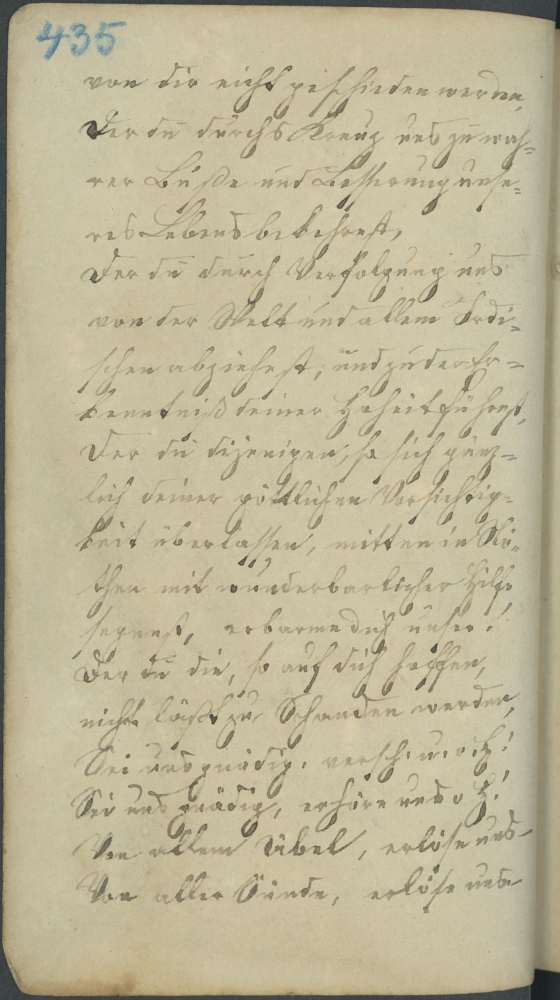 435
von dir nicht geschieden werden,
Der du durchs Kreuz uns zu wah=
rer Buße und Besserung unse=
res Lebens bekehrest,
Der du durch Verfolgung uns
von der Welt und allem Irdi=
schen abziehest, und zu der Er=
kenntniß deiner Hoheit führest,
Der du diejenigen, so sich gänz=
lich deiner göttlichen Vorsichtig=
keit überlassen, mitten in Nö=
then mit wunderbarlicher Hilfe
segnest, erbarme dich unser!
Der du die, so auf dich hoffen,
nicht läßt zu Schanden werden,
Sei uns gnädig, versch. u. o H!
Sei uns gnädig, erhöre uns o H!
Von allem Übel, erlöse uns
Von aller Sünde, erlöse uns